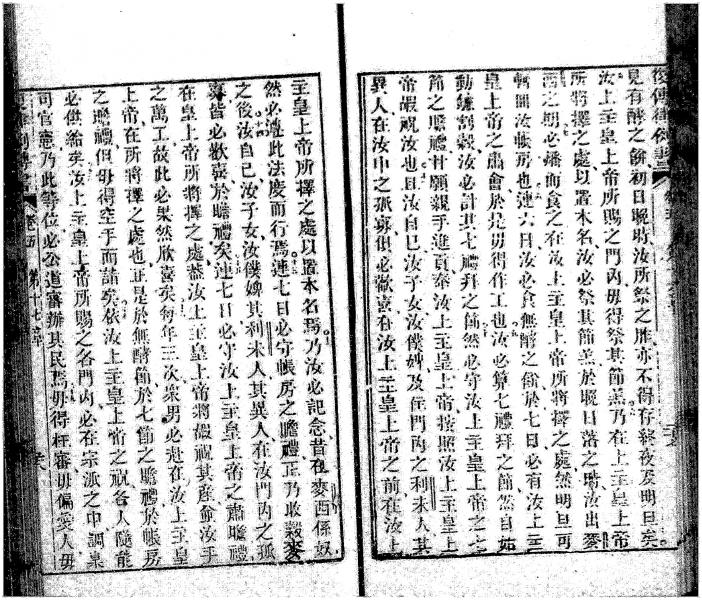 復傳律例書
見有酵之餘初日晚時汝所祭之胙亦不得存終夜及明旦矣
汝上主皇上帝所賜之門內毋得祭其節羔乃在上主皇上帝
所將擇之處以置本名汝必祭其節羔於晚日落之時汝出麥
西之期必燔而食之在汝上主皇上帝所將擇之處然明旦可
轉回汝帳房也連六日汝必食無酵之餅於七日必有汝上主
皇上帝之肅會於是毋得作工也汝必算七禮拜之節然自始
動鐮割穀汝必計其七禮拜之節然必守汝上主皇上帝之七
節之瞻禮甘願親手進貢奉汝上主皇上帝按照汝上主皇上
帝嘏祝汝也且汝自己汝子女汝僕婢及住門內之利未人其
異人在汝中之孤寡俱必歡喜在汝上主皇上帝之前在汝上
主皇上帝所擇之處以置本名焉乃汝必記念昔在麥西係奴
然必遵此法度而行焉連七日必守帳房之瞻禮正乃收穀麥
之後汝自己汝子女汝僕婢其利未人其異人在汝門內之孤
寡皆必歡喜於瞻禮矣連七日必守汝上主皇上帝之肅瞻禮
在皇上帝所將擇之處蓋汝上主皇上帝將嘏祝其產並汝手
之萬工故此必果然欣喜矣每年三次衆男必赴在汝上主皇
上帝在所將擇之處也正是於無酵節於七節之瞻禮於帳房
之瞻禮但毋得空手而詣矣依汝上主皇上帝之祝各人隨能
必供給矣汝上主皇上帝所賜之各門內必在宗派之中調臬
司官憲乃此等位必公道審辦其民焉毋得枉審毋偏愛人毋
卷五 第十七章